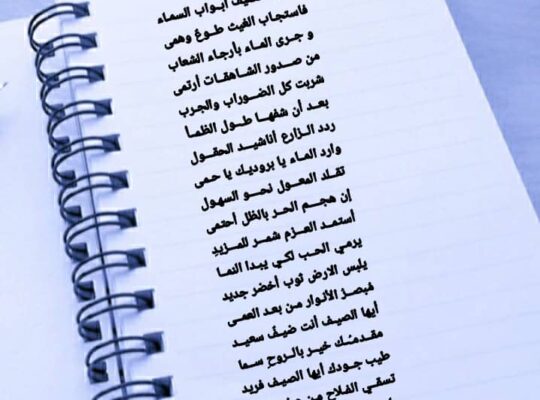 أبواب السماء
فاستجاب الغيث طوعٌ وهمى
و جرى الماء بأرجاء الشعاب
من صدور الشاهقات أرتمى
شربت كل الضوراب والجرب
بعد أن شفها طول الظمأ
ردد الزارع أناشيد الحقول
وارد الماء يا بروديك يا حمى
تقلد المعول نحو السهول
إن هجم الحر بالظل أحتمى
أستمد العزم شمر للمزيدِ
يرمي الحب لكي يبدا النما
يلبس الارض ثوب أخضر جديد
مُبصرُ الأنوار من بعد العمى
أيها الصيف أنت ضيفُ سعيد
مقدمـُك خير بالروحِ سما
طيب جودك أيها الصيف فريد
تسقي الفلاح من